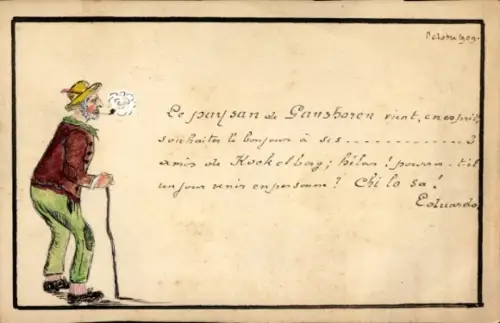 Octobre 1909.
Le paysan de Ganshoren vient, en esprit,
souhaiter le bonjour à ses - - - - - - - - - - - 3
amis de Koekelberg; hélas! pourra-t-il
un jour venir en personne? Chi lo sa!
Eduardo.